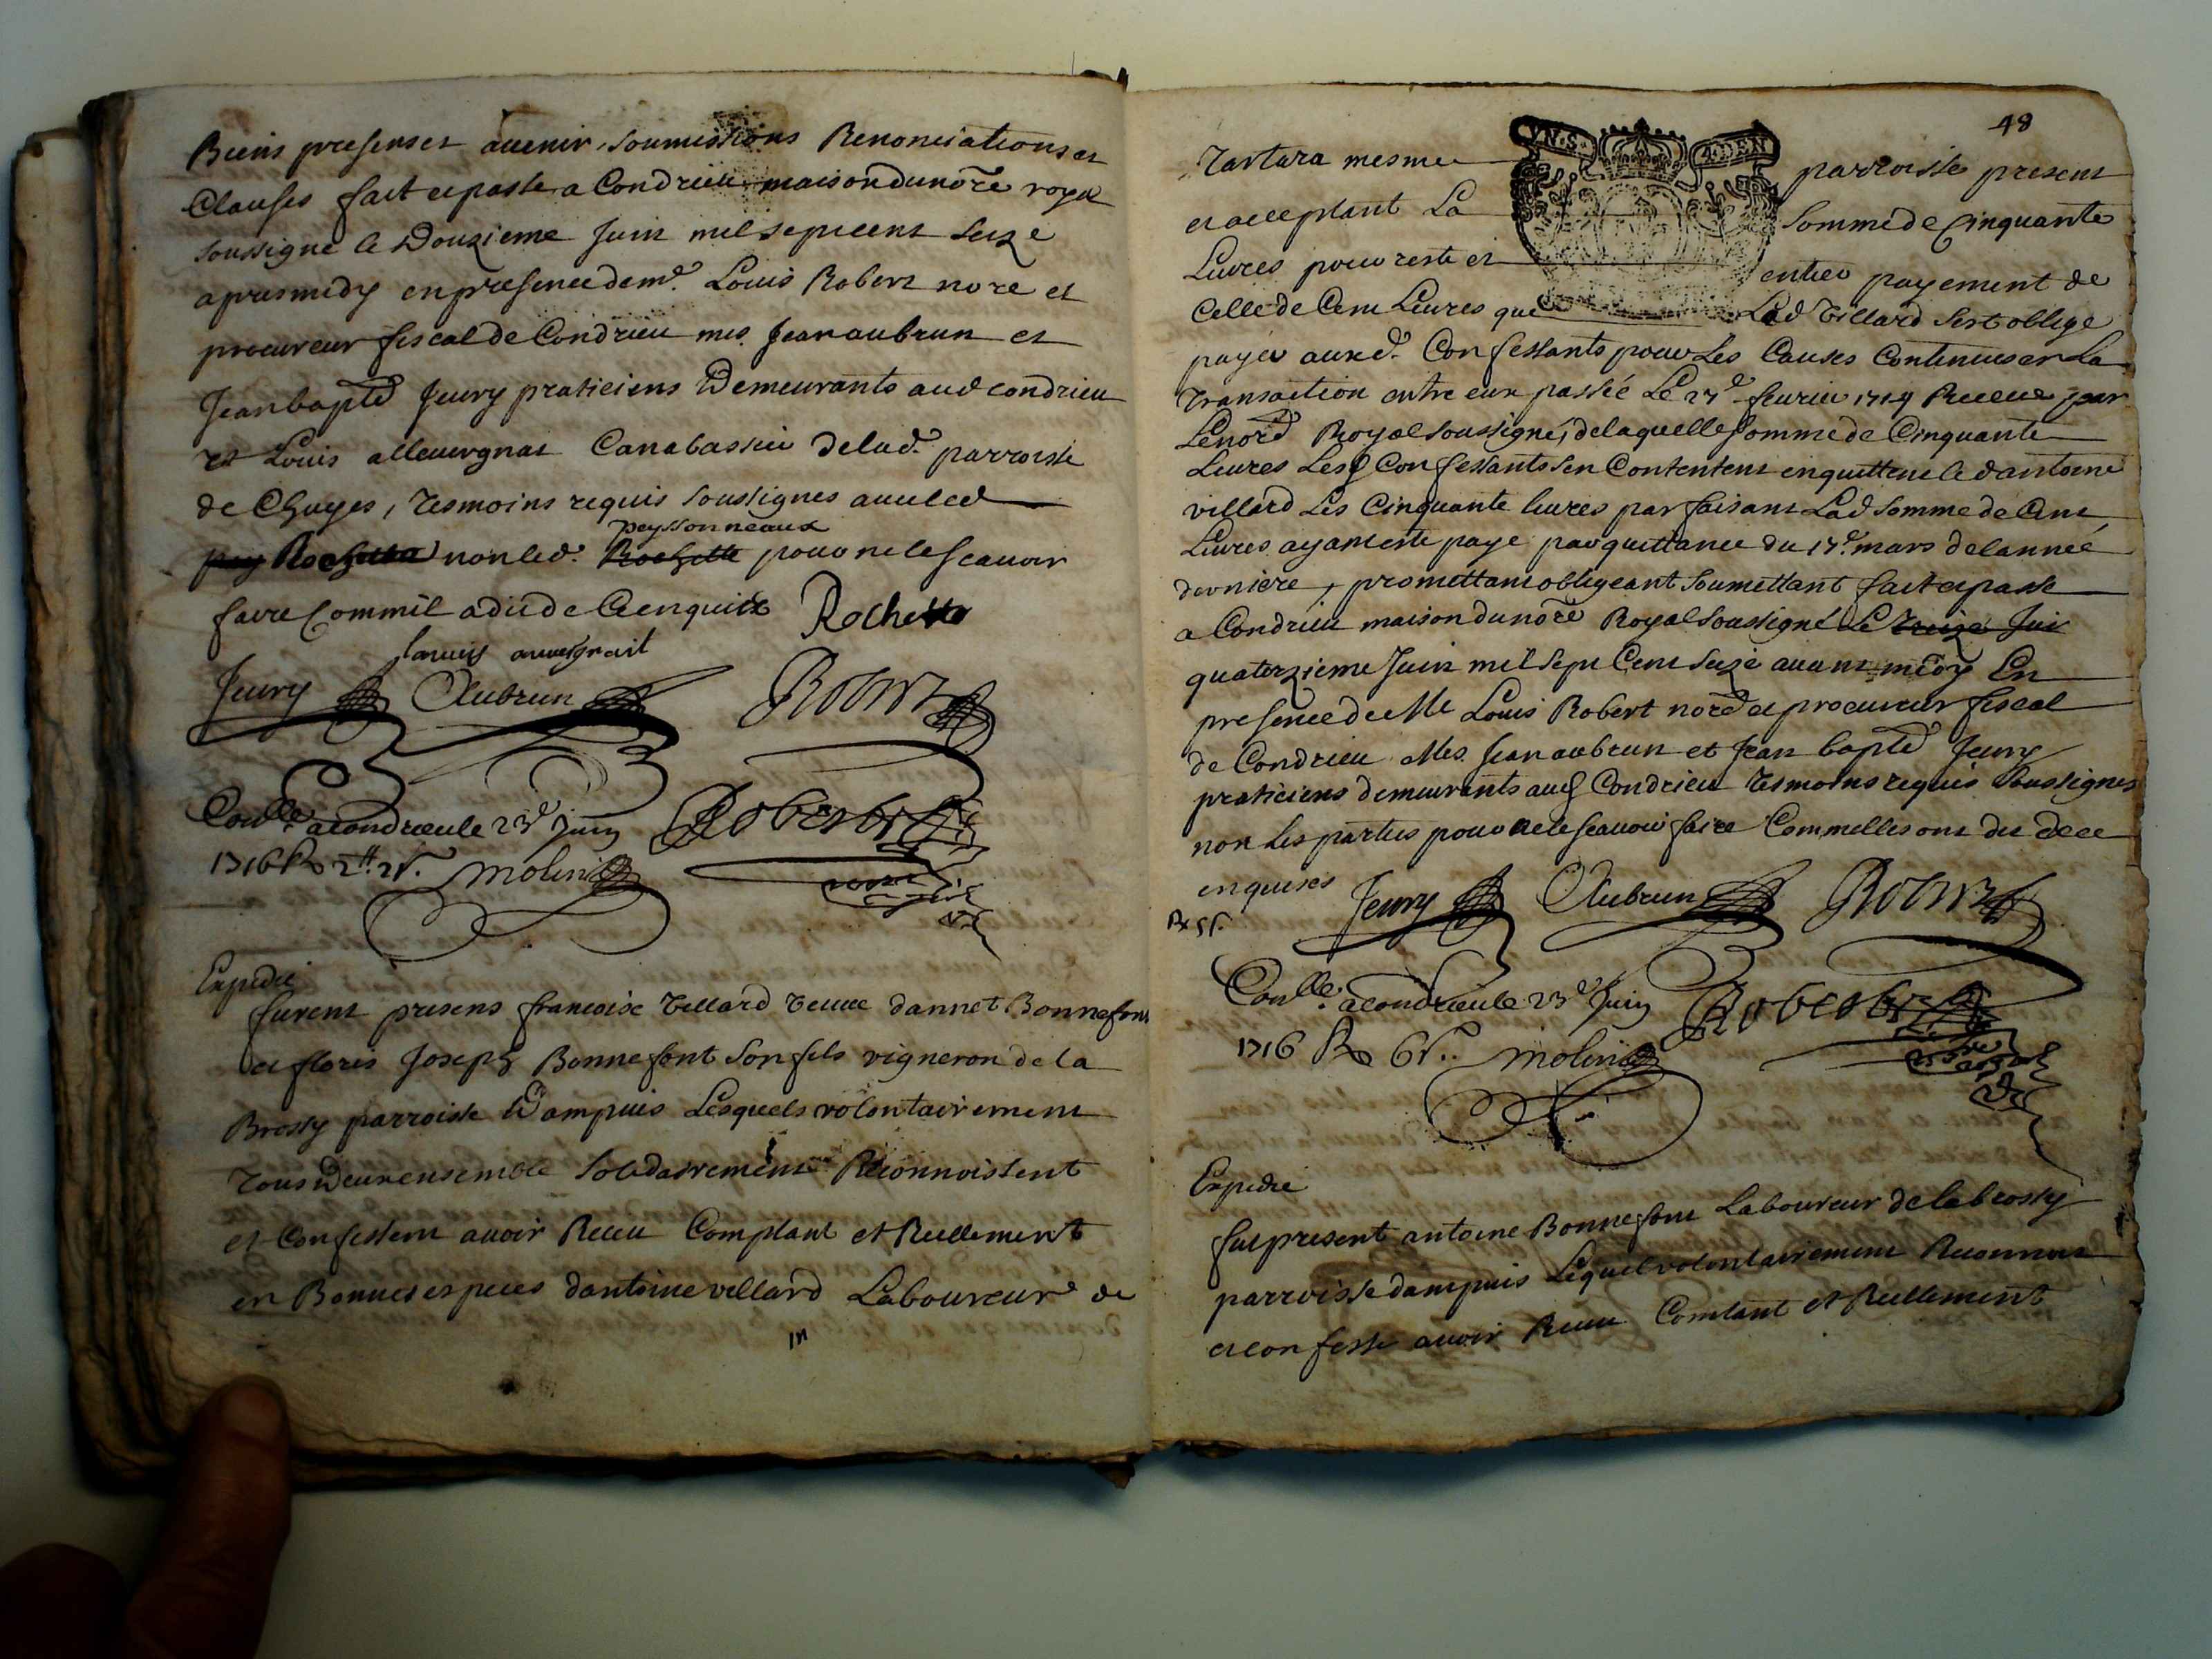 Biens presens et auenir, soumissions Renonciations et
Clauses fait et passé a Condrieu maison du no.re royal
soussigné le Douzieme Juin mil sept cent seize
apres midy en presence de m.e Louis Robert no.re et
procureur fiscal de Condrieu mes. Jean aubrun et
Jean bapt.e Jeury praticiens Demeurants aud condrieu
et Louis alleuvergnat Canabassier de lad. parroisse
de Chuyes, Tesmoins requis soussignes auec led
peyssonneaux
pey Rochette non led. Rochette pour ne le scauoir
faire Comm'il a dit de Ce enquis Rochette
Jeury Aubrun Robert
Con.lle a condrieu le 23.e Juin Robert
1716 R 2.tt 2 s. molin
Expedie
furent presens francoise Villard veuue dannet Bonnefont
et floris Joseph Bonnefont son fils vigneron de la
Brossy parroisse Dampuis Lesquels volontairement
Tous Deux ensemble solidairement Reconnoissent
et Confessent auoir Receu Comptant et Reellement
en Bonnes especes dantoine villard Laboureur de
48
Tartara mesme parroisse present
et acceptant La somme de Cinquante
Liures pour reste et entier payement de
Celle de Cent Liures que Led Villard s'est obligé
payer auxd. Confessants pour Les Causes Contenues en La
Transaction entre eux passée Le 27.e feurier 1714 Receue par
Le nor.e Royal soussigné, de laquelle somme de Cinquante
Liures Lesd Confessants s'en Contentent en quittent led antoine
villard Les Cinquante liures parfaisant Lad somme de Cent
Liures ayant esté payé par quittance du 17.e mars de l'année
derniere, promettant obligeant soumettant fait et passé
a Condrieu maison du no.re Royal soussigné Le Treize Jui
quatorzieme Juin mil sept Cent seize auant midy En
presence de Me Louis Robert nor.e et procureur fiscal
de Condrieu Mes. Jean aubrun et Jean bapt.e Jeury
praticiens demeurants aud Condrieu Tesmoins requis soussignes
non Les parties pour ne le scauoir faire Comm'elles ont dit de ce
enquises Jeury Aubrun Robert
Con.lle a condrieu le 23.e Juin Robert
1716 R 6 s. molin
Expedie
fut present antoine Bonnefont Laboureur de la brossy
parroisse dampuis Lequel volontairement Reconnoit
et confesse auoir Receu Comtant et Reellement